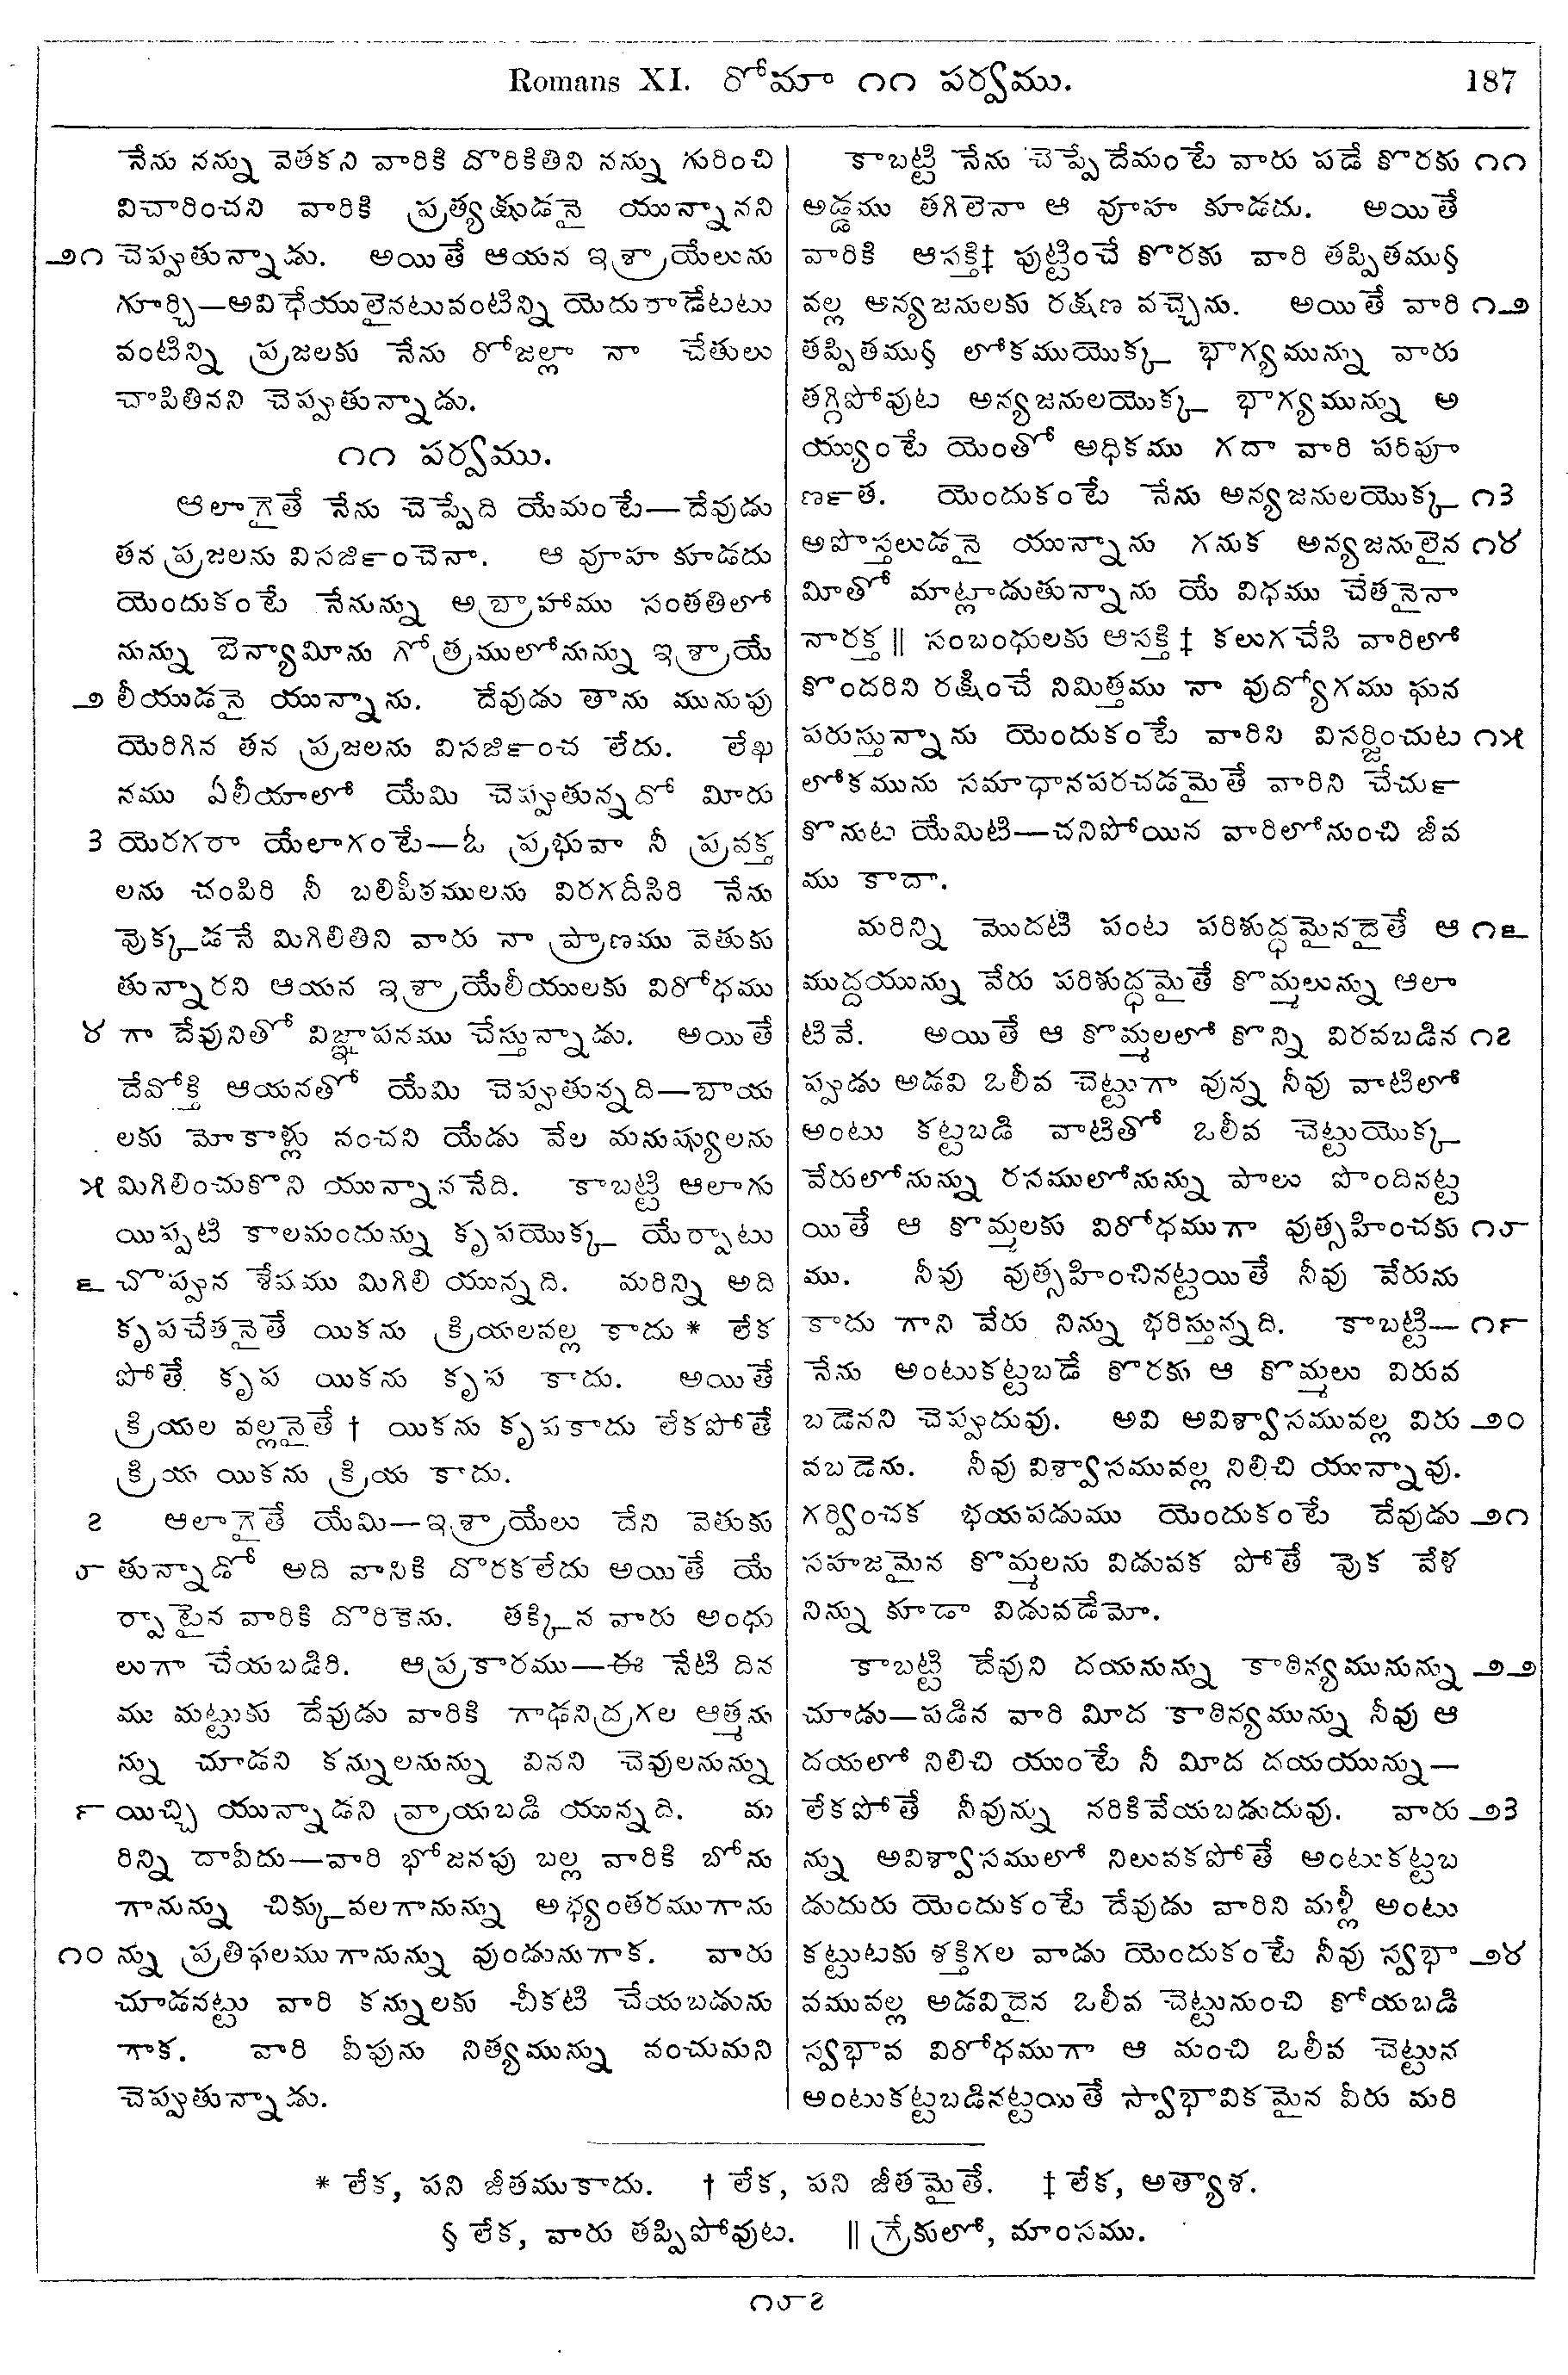 Romans XI. రోమా ౧౧ పర్వము. 187
నేను నన్ను వెతకని వారికి దొరికితిని నన్ను గురించి
విచారించని వారికి ప్రత్యక్షుడనై యున్నానని
౨౧ చెప్పుతున్నాడు. అయితే ఆయన ఇశ్రాయేలును
గూర్చి—అవిధేయులైనటువంటిన్ని యెదురాడేటటు
వంటిన్ని ప్రజలకు నేను రోజల్లా నా చేతులు
చాపితినని చెప్పుతున్నాడు.
౧౧ పర్వము.
ఆలాగైతే నేను చెప్పేది యేమంటే—దేవుడు
తన ప్రజలను విసజిఁంచెనా. ఆ వూహ కూడదు
యెందుకంటే నేనున్ను అబ్రాహాము సంతతిలో
నున్ను బెన్యామీను గోత్రములోనున్ను ఇశ్రాయే
౨ లీయుడనై యున్నాను. దేవుడు తాను మునుపు
యెరిగిన తన ప్రజలను విసజిఁంచ లేదు. లేఖ
నము ఏలీయాలో యేమి చెప్పుతున్నదో మీరు
౩ యెరగరా యేలాగంటే—ఓ ప్రభువా నీ ప్రవక్త
లను చంపిరి నీ బలిపీఠములను విరగదీసిరి నేను
వుక్కడనే మిగిలితిని వారు నా ప్రాణము వెతుకు
తున్నారని ఆయన ఇశ్రాయేలీయులకు విరోధము
౪ గా దేవునితో విజ్ఞాపనము చేస్తున్నాడు. అయితే
దేవోక్తి ఆయనతో యేమి చెప్పుతున్నది—బాయ
లకు మోకాళ్లు వంచని యేడు వేల మనుష్యులను
౫ మిగిలించుకొని యున్నాననేది. కాబట్టి ఆలాగు
యిప్పటి కాలమందున్ను కృపయొక్క యేర్పాటు
౬ చొప్పున శేషము మిగిలి యున్నది. మరిన్ని అది
కృపచేతనైతే యికను క్రియలవల్ల కాదు* లేక
పోతే కృప యికను కృప కాదు. అయితే
క్రియల వల్లనైతే† యికను కృపకాదు లేకపోతే
క్రియ యికను క్రియ కాదు.
౭ ఆలాగైతే యేమి—ఇశ్రాయేలు దేని వెతుకు
౮ తున్నాడో అది వానికి దొరకలేదు అయితే యే
ర్పాటైన వారికి దొరికెను. తక్కిన వారు అంధు
లుగా చేయబడిరి. ఆప్రకారము—ఈ నేటి దిన
ము మట్టుకు దేవుడు వారికి గాఢనిద్రగల ఆత్మను
న్ను చూడని కన్నులనున్ను వినని చెవులనున్ను
౯ యిచ్చి యున్నాడని వ్రాయబడి యున్నది. మ
రిన్ని దావీదు—వారి భోజనపు బల్ల వారికి బోను
గానున్ను చిక్కువలగానున్ను అభ్యంతరముగాను
౧౦ న్ను ప్రతిఫలముగానున్ను వుండునుగాక. వారు
చూడనట్టు వారి కన్నులకు చీకటి చేయబడును
గాక. వారి వీపును నిత్యమున్ను వంచుమని
చెప్పుతున్నాడు.
కాబట్టి నేను చెప్పేదేమంటే వారు పడే కొరకు ౧౧
అడ్డము తగిలెనా ఆ వూహ కూడదు. అయితే
వారికి ఆసక్తి‡ పుట్టించే కొరకు వారి తప్పితము§
వల్ల అన్యజనులకు రక్షణ వచ్చెను. అయితే వారి ౧౨
తప్పితము§ లోకముయొక్క భాగ్యమున్ను వారు
తగ్గిపోవుట అన్యజనులయొక్క భాగ్యమున్ను అ
య్యుంటే యెంతో అధికము గదా వారి పరిపూ
ణఁత. యెందుకంటే నేను అన్యజనులయొక్క ౧౩
అపొస్తలుడనై యున్నాను గనుక అన్యజనులైన ౧౪
మీతో మాట్లాడుతున్నాను యే విధము చేతనైనా
నారక్త‖ సంబంధులకు ఆసక్తి‡ కలుగచేసి వారిలో
కొందరిని రక్షించే నిమిత్తము నా వుద్యోగము ఘన
పరుస్తున్నాను యెందుకంటే వారిని విసర్జించుట ౧౫
లోకమును సమాధానపరచడమైతే వారిని చేచుఁ
కొనుట యేమిటి—చనిపోయిన వారిలోనుంచి జీవ
ము కాదా.
మరిన్ని మొదటి పంట పరిశుద్ధమైనదైతే ఆ ౧౬
ముద్దయున్ను వేరు పరిశుద్ధమైతే కొమ్మలున్ను ఆలా
టివే. అయితే ఆ కొమ్మలలో కొన్ని విరవబడిన ౧౭
ప్పుడు అడవి ఒలీవ చెట్టుగా వున్న నీవు వాటిలో
అంటు కట్టబడి వాటితో ఒలీవ చెట్టుయొక్క
వేరులోనున్ను రసములోనున్ను పాలు పొందినట్ట
యితే ఆ కొమ్మలకు విరోధముగా వుత్సహించకు ౧౮
ము. నీవు వుత్సహించినట్టయితే నీవు వేరును
కాదు గాని వేరు నిన్ను భరిస్తున్నది. కాబట్టి— ౧౯
నేను అంటుకట్టబడే కొరకు ఆ కొమ్మలు విరువ
బడెనని చెప్పుదువు. అవి అవిశ్వాసమువల్ల విరు ౨౦
వబడెను. నీవు విశ్వాసమువల్ల నిలిచి యున్నావు.
గర్వించక భయపడుము యెందుకంటే దేవుడు ౨౧
సహజమైన కొమ్మలను విడువక పోతే వుక వేళ
నిన్ను కూడా విడువడేమో.
కాబట్టి దేవుని దయనున్ను కాఠిన్యమునున్ను ౨౨
చూడు—పడిన వారి మీద కాఠిన్యమున్ను నీవు ఆ
దయలో నిలిచి యుంటే నీ మీద దయయున్ను—
లేకపోతే నీవున్ను నరికివేయబడుదువు. వారు ౨౩
న్ను అవిశ్వాసములో నిలువకపోతే అంటుకట్టబ
డుదురు యెందుకంటే దేవుడు వారిని మళ్లీ అంటు
కట్టుటకు శక్తిగల వాడు యెందుకంటే నీవు స్వభా ౨౪
వమువల్ల అడవిదైన ఒలీవ చెట్టునుంచి కోయబడి
స్వభావ విరోధముగా ఆ మంచి ఒలీవ చెట్టున
అంటుకట్టబడినట్టయితే స్వాభావికమైన వీరు మరి
* లేక, పని జీతముకాదు. † లేక, పని జీతమైతే. ‡ లేక, అత్యాశ.
§ లేక, వారు తప్పిపోవుట. ‖ గ్రేకులో, మాంసము.
౧౮౭